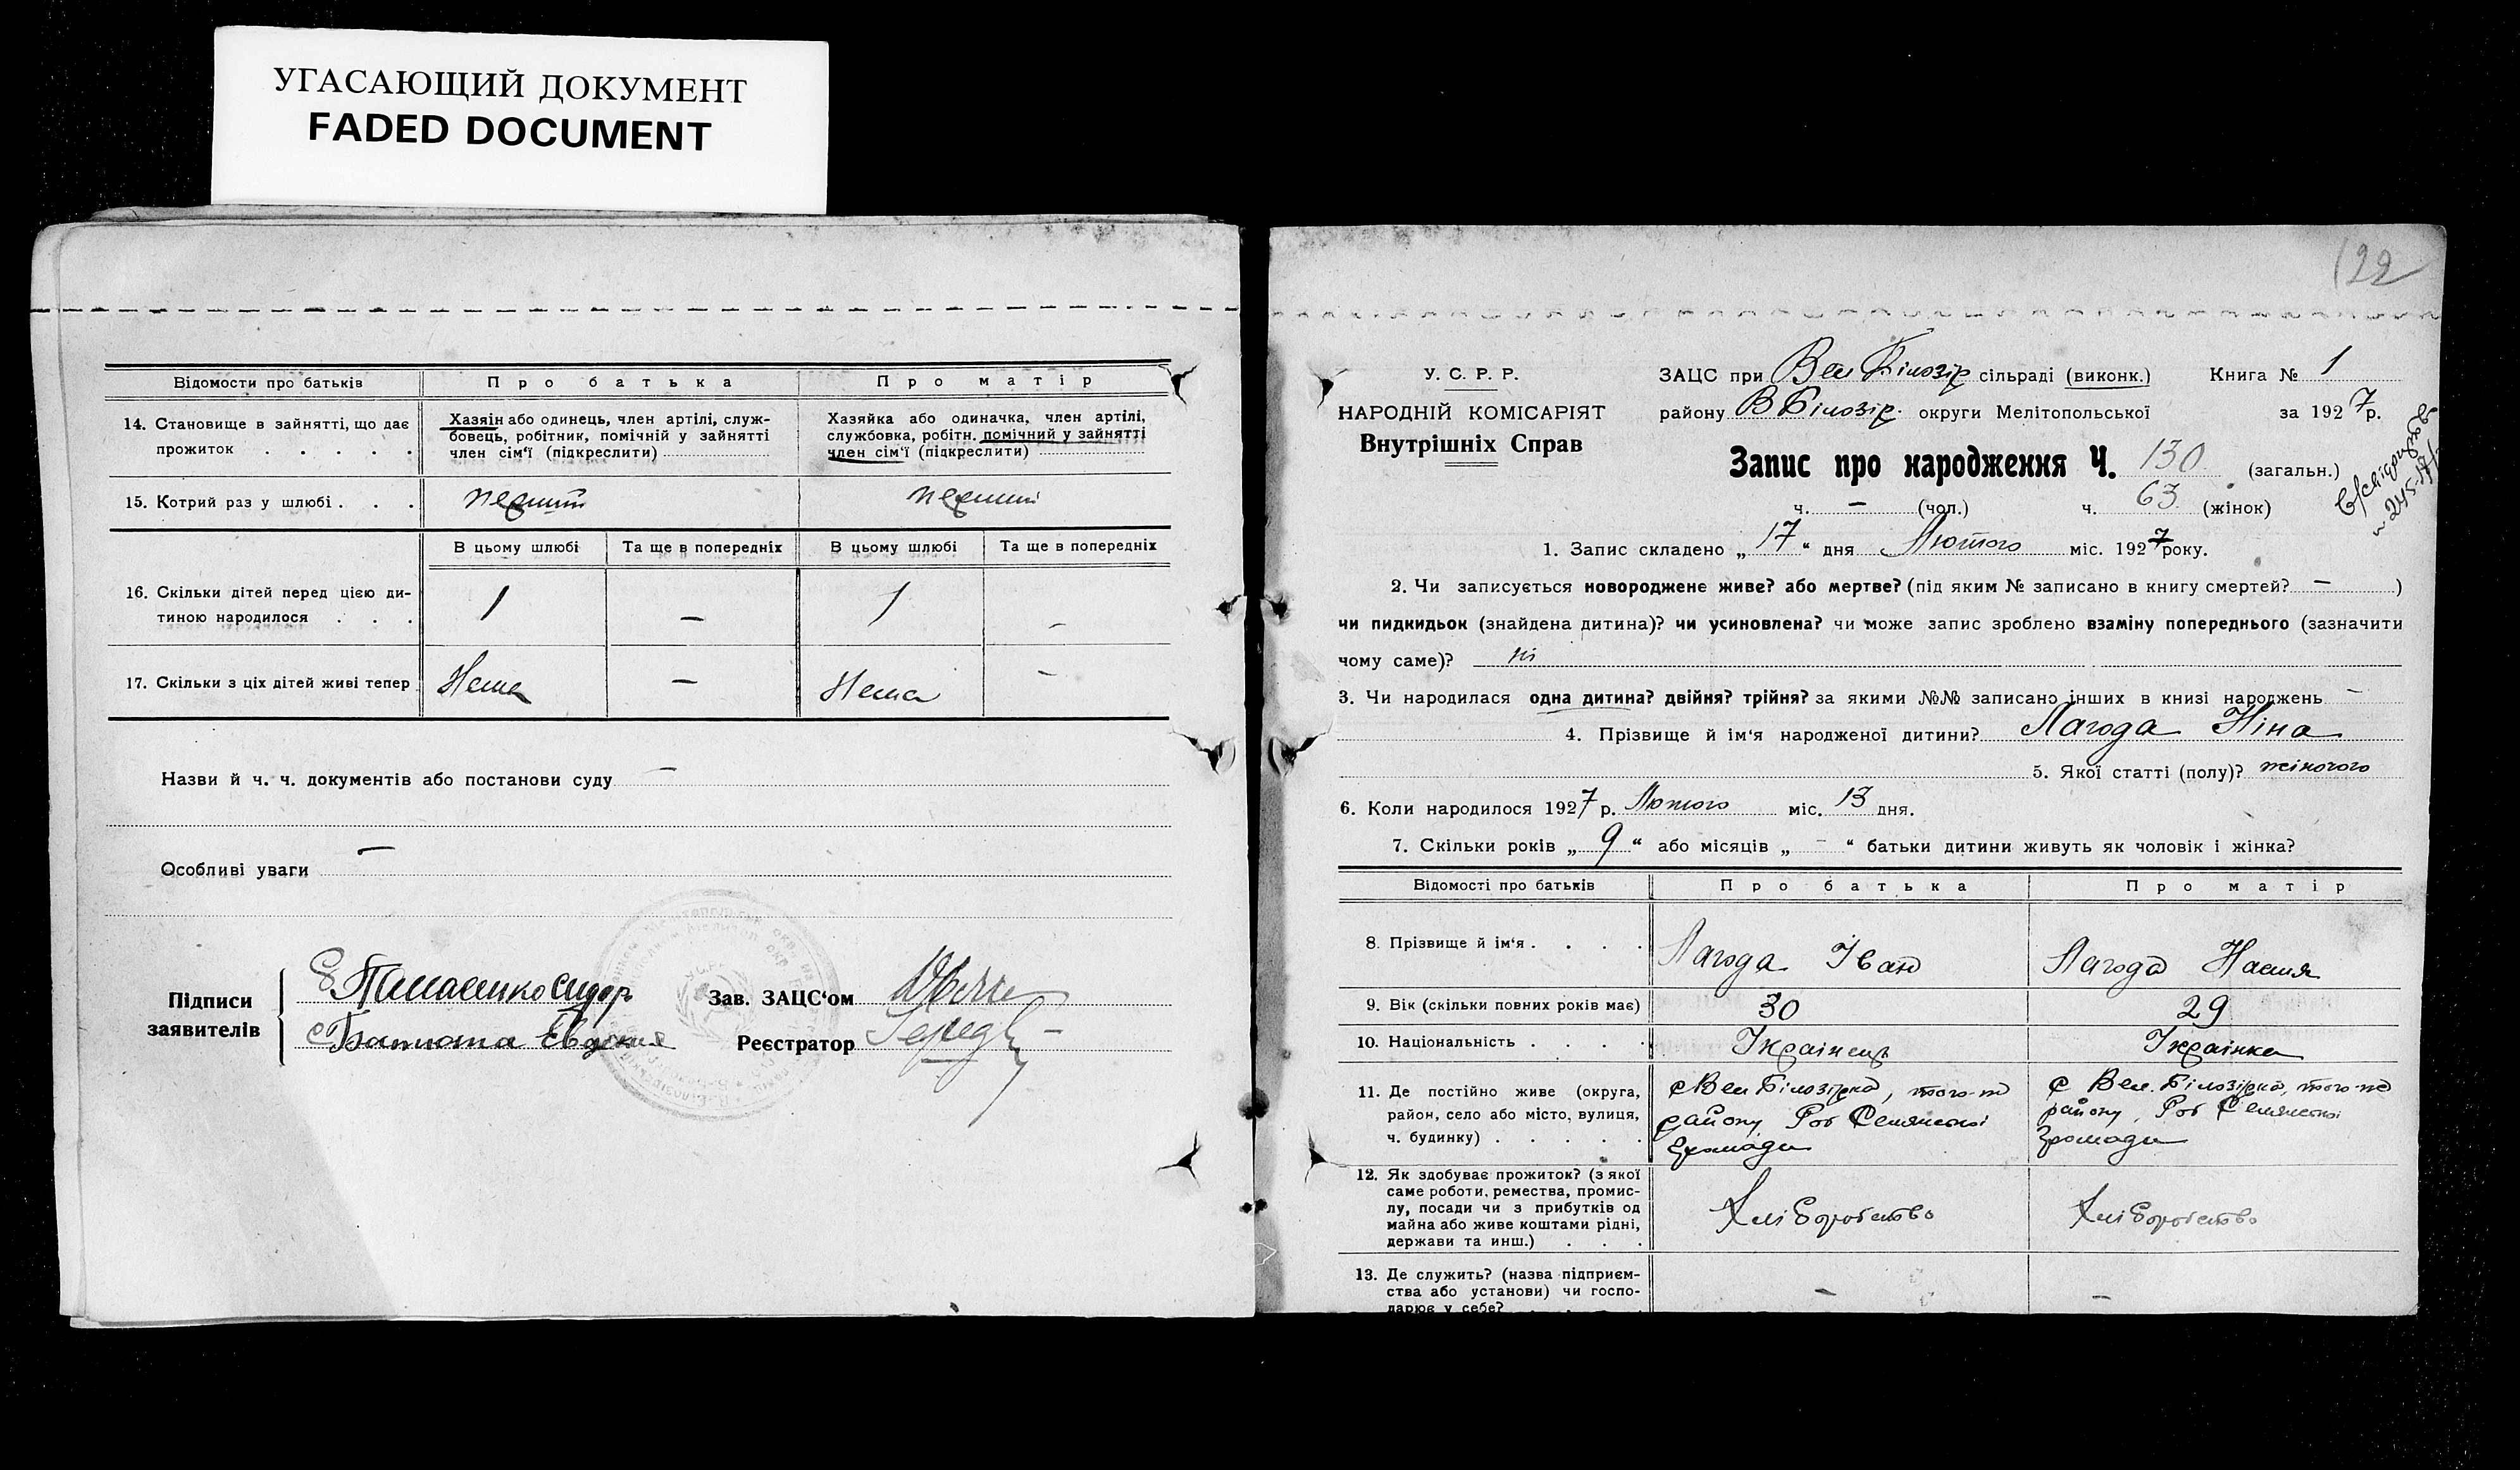 УГАСАЮЩИЙ ДОКУМЕНТ
FADED DOCUMENT
Відомости про батьків
Про батька
Про матір
14. Становище в зайнятті, що дає прожиток . . . . .
Хазяін або одинець, член артілі, служ-
бовець, робітник, помічній у зайнятті
член сім'ї (підкреслити)
Хазяйка або одиначка, член артілі,
службовка, робітн. помічний у зайнятті
член сім'ї (підкреслити)
15. Котрий раз у шлюбі . . .
В цьому шлюбі
Та ще в попередніх
В цьому шлюбі
Та ще в попередніх
16. Скільки дітей перед цією ди-
тиною народилося . . .
1
—
1
—
17. Скільки з ціх дітей живі тепер
Нема
—
Нема
—
Назви й ч. ч. документів або постанови суду —
Особливі уваги —
Підписи
заявителів
Зав. ЗАЦС'ом
Реєстратор
122
У. С. Р. Р.
НАРОДНІЙ КОМІСАРІЯТ
Внутрішніх Справ
ЗАЦС при Вел Білозір сільраді (виконк.)
Книга № 1
району В Білозір. округи Мелітопольської
за 1927 р.
Запис про народження Ч. 130 (загальн.)
ч. — (чол.) ч. 63 (жінок)
1. Запис складено „ 17 “ дня Лютого міс. 1927 року.
2. Чи записується новороджене живе? або мертве? (під яким № записано в книгу смертей? — )
чи пидкидьок (знайдена дитина)? чи усиновлена? чи може запис зроблено взаміну попереднього (зазначити
чому саме)? ні
3. Чи народилася одна дитина? двійня? трійня? за якими №№ записано інших в книзі народжень —
4. Прізвище й ім'я народженої дитини? Лагода Ніна
5. Якої статті (полу)? жіночого
6. Коли народилося 1927 р. Лютого міс. 13 дня.
7. Скільки років „ 9 “ або місяців „ — “ батьки дитини живуть як чоловік і жінка?
Відомості про батьків
Про батька
Про матір
8. Прізвище й ім'я . . . .
Лагода Іван
Лагода Настя
9. Вік (скільки повних років має)
30
29
10. Національність . . . .
Українець
Українка
11. Де постійно живе (округа,
район, село або місто, вулиця,
ч. будинку) . . . . .
с Вел Білозірка, того-ж
району, Роб Селянської
громади
с Вел. Білозірка, того-ж
району, Роб Селянської
громади
12. Як здобуває прожиток? (з якої
саме роботи, ремества, промис-
лу, посади чи з прибутків од
майна або живе коштами рідні,
держави та инш.) . . .
Хліборобство
Хліборобство
13. Де служить? (назва підприєм-
ства або установи) чи госпо-
дарює у себе?
—
—